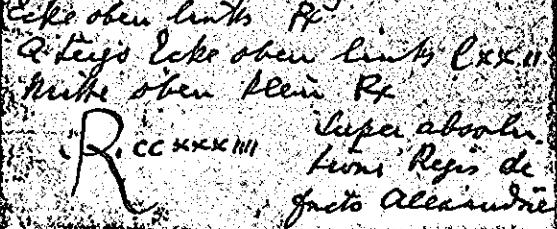 Ecke oben links Rx
a tergo Ecke oben links lxxII
Mitte oben klein Rx
R. ccxxxIIII
Super absolu.
tione Regis de
facto Alexandrie